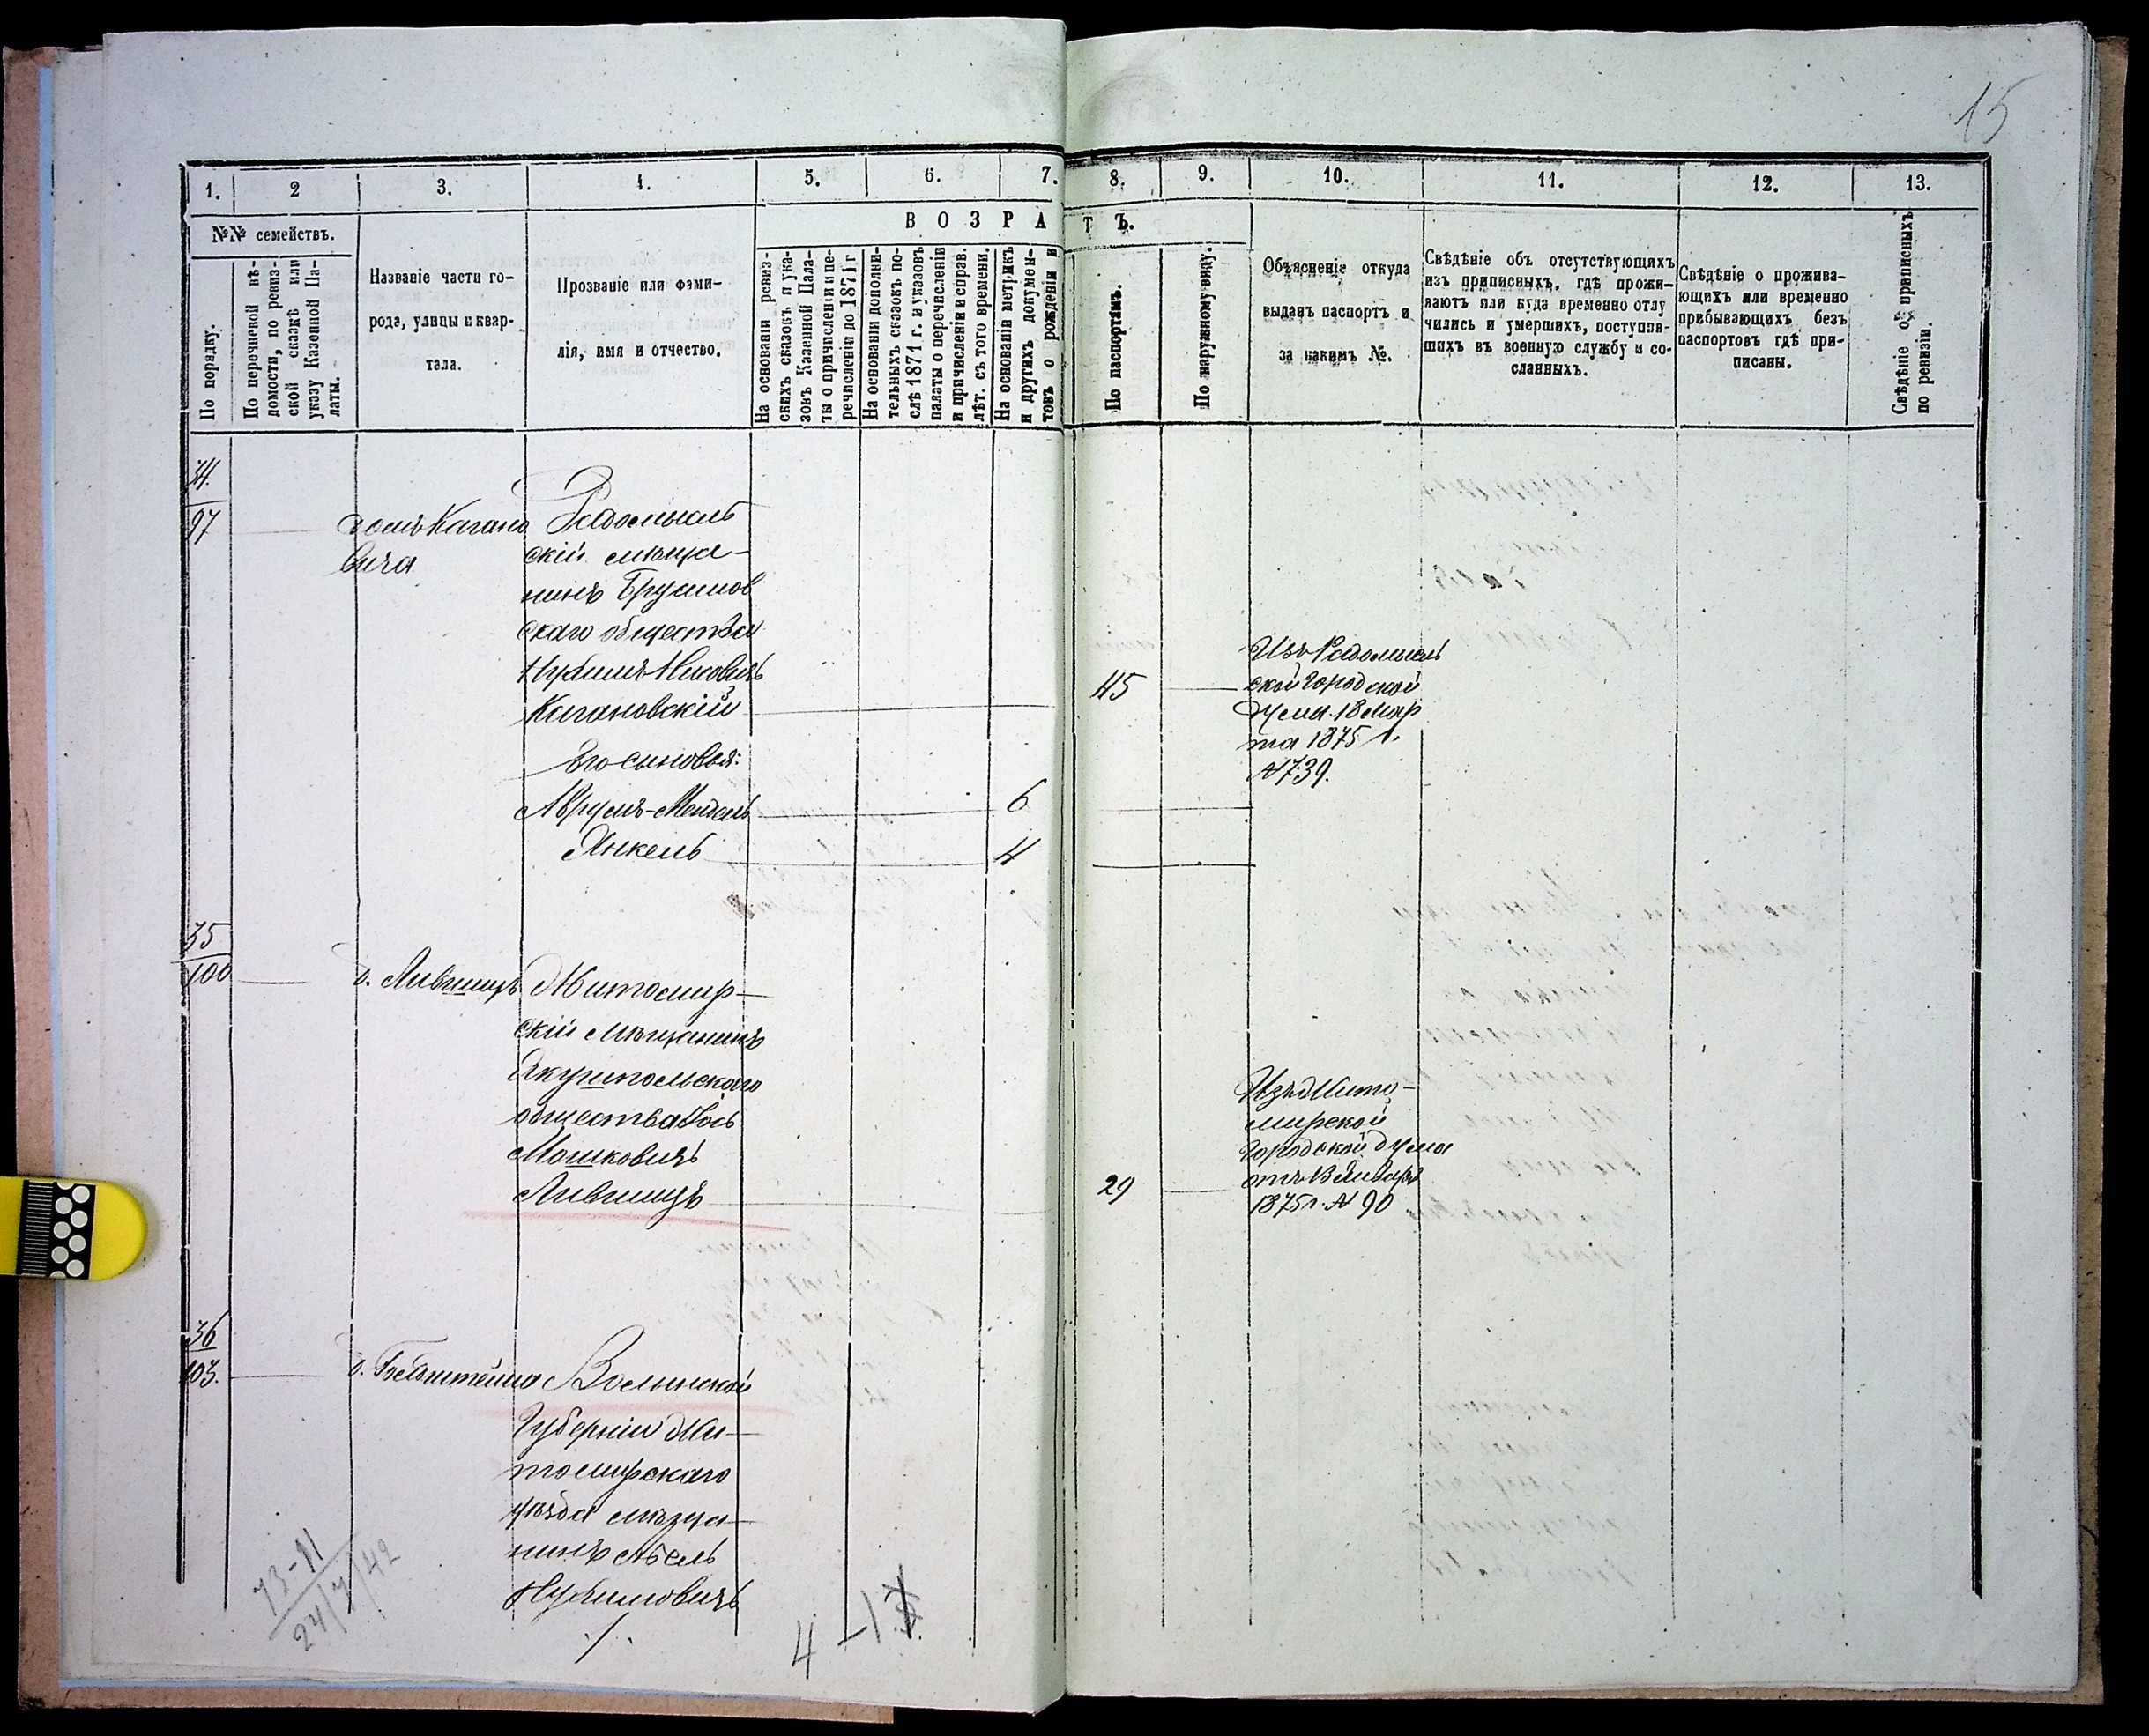 15
1.
2
3.
4.
5.
6.
7.
8.
9.
10.
11.
12.
13.
№№ семействъ.
По порядку.
По перечневой вѣ-
домости, по ревиз-
ской сказкѣ или
указу Казенной Па-
латы.
Названіе части го-
рода, улицы и квар-
тала.
Прозваніе или фами-
лія, имя и отчество.
ВОЗРА
ТЪ.
На основаніи ревиз-
скихъ сказокъ и ука-
зовъ Казенной Пала-
ты о причисленіи и пе-
речисленіи до 1871 г
На основаніи дополни-
тельныхъ сказокъ по-
слѣ 1871 г. и указовъ
палаты о перечисленіи
и причисленіи и справ.
лѣт. съ того времени.
На основаніи метрикъ
и другихъ докумен-
товъ о рожденіи и
По паспортамъ.
По наружному виду.
Объясненіе откуда
выданъ паспортъ и
за какимъ №.
Свѣдѣніе объ отсутствующихъ
изъ приписныхъ, гдѣ прожи-
ваютъ или куда временно отлу
чились и умершихъ, поступив-
шихъ въ военную службу и со-
сланныхъ.
Свѣдѣніе о прожива-
ющихъ или временно
прибывающихъ безъ
паспортовъ гдѣ при-
писаны.
Свѣдѣніе о приписныхъ
по ревизіи.
34.
97
домъ Кагано
вича
Радомысль
скій мѣща-
нинъ Брусилов
скаго общества
Нухимъ Ицковичъ
Кагановскій
45
Изъ Радомысль
ской Городской
Думы 18 Мар
та 1875 г.
№739.
Его сыновья:
Аврумъ-Мендель
6
Янкель
4
35
100
д. Лившицъ
Житомир-
скій мѣщанинъ
общества
Мошковичъ
Лившицъ
29
Изъ Жито-
мирской
Городской Думы
отъ 13 Января
1875 г. № 90
36
103.
д. Бельштейна
Волынской
Губерніи Жи-
томирскаго
уѣзда мѣща-
нинъ
Нухимовичъ
73-11
24/7/42
4 -1